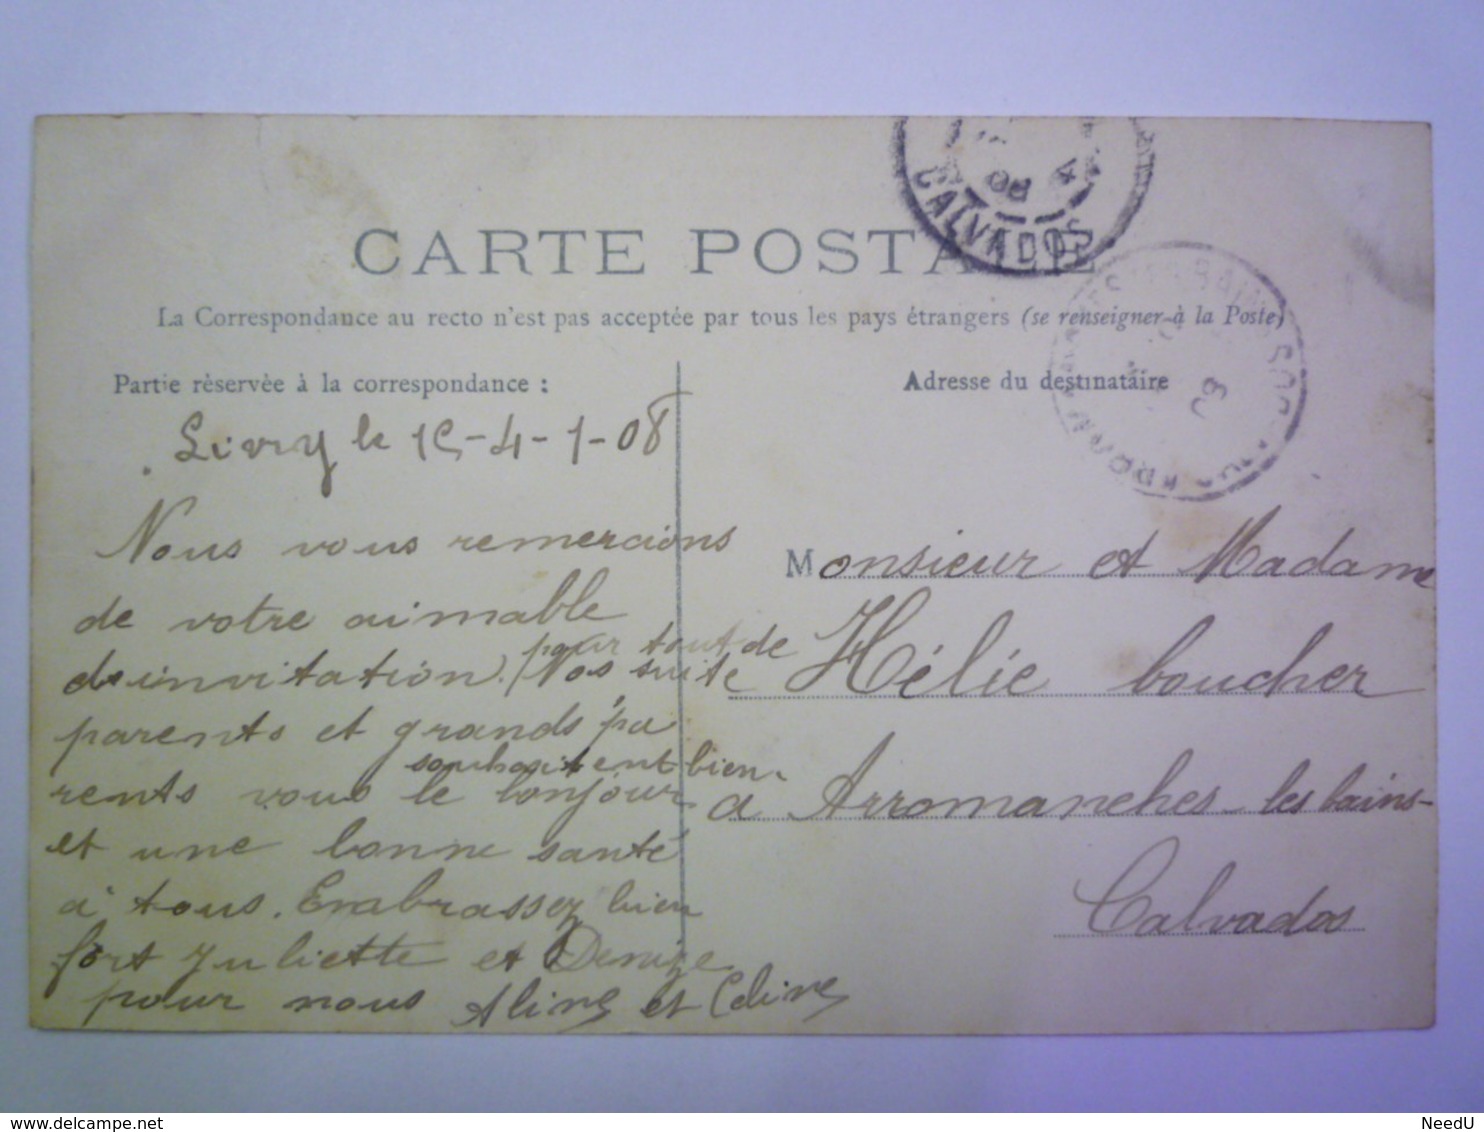 CALVADOS
CARTE POSTALE
La Correspondance au recto n'est pas acceptée par tous les pays étrangers (se renseigner à la Poste)
Partie réservée à la correspondance :
Livry le 15-4-1-08
Nous vous remercions
de votre aimable
pour tout de
invitation. Nos suite
parents et grands pa
souhaitent bien
rents vous le bonjour
et une bonne santé
à tous. Embrassez bien
fort Juliette et Denize
pour nous Aline et Celine
Adresse du destinataire
Monsieur et Madame
Hélie boucher
a Arromanches-les bains-
Calvados
www.delcampe.net
NeedU